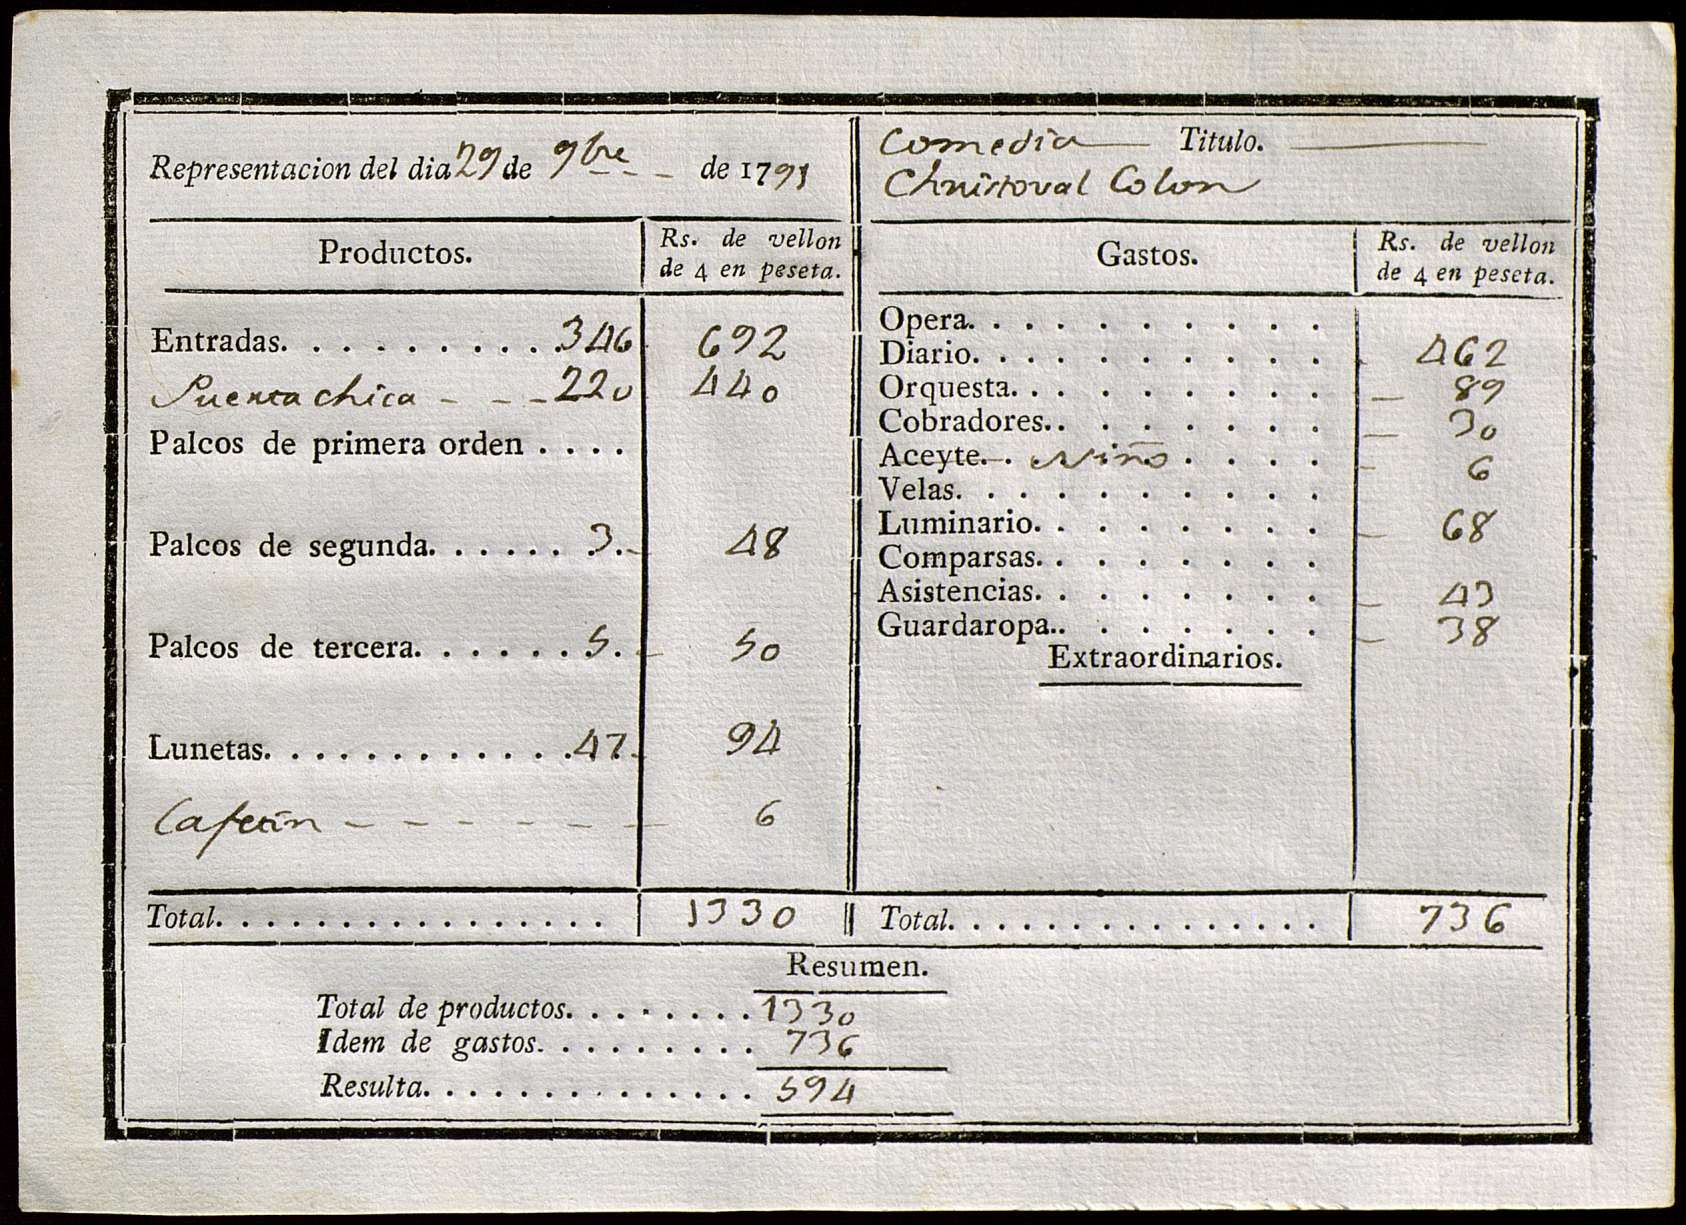 Representacion del dia 29 de 9bre - - - de 1791
Comedia — Titulo. —
Christoval Colon
Productos.
Rs. de vellon
de 4 en peseta.
Entradas. . . . . . . . . . 346 692
Puerta chica - - - 220 440
Palcos de primera orden . . . .
Palcos de segunda. . . . . . . 3. - 48
Palcos de tercera. . . . . . . 5. - 50
Lunetas. . . . . . . . . . . . . 47. 94
Cafetin - - - - - - - 6
Total. . . . . . . . . . . . . . . . 1330
Gastos.
Rs. de vellon
de 4 en peseta.
Opera. . . . . . . . . .
Diario. . . . . . . . . . 462
Orquesta. . . . . . . . . - 89
Cobradores.. . . . . . . - 30
Aceyte. . Niño . . . . - 6
Velas. . . . . . . . . .
Luminario. . . . . . . . - 68
Comparsas. . . . . . . .
Asistencias. . . . . . . . - 43
Guardaropa.. . . . . . . - 38
Extraordinarios.
Total. . . . . . . . . . . . . . . . 736
Resumen.
Total de productos. . . . . . . . 1330
Idem de gastos. . . . . . . . . . 736
Resulta. . . . . . . . . . . . . . 594